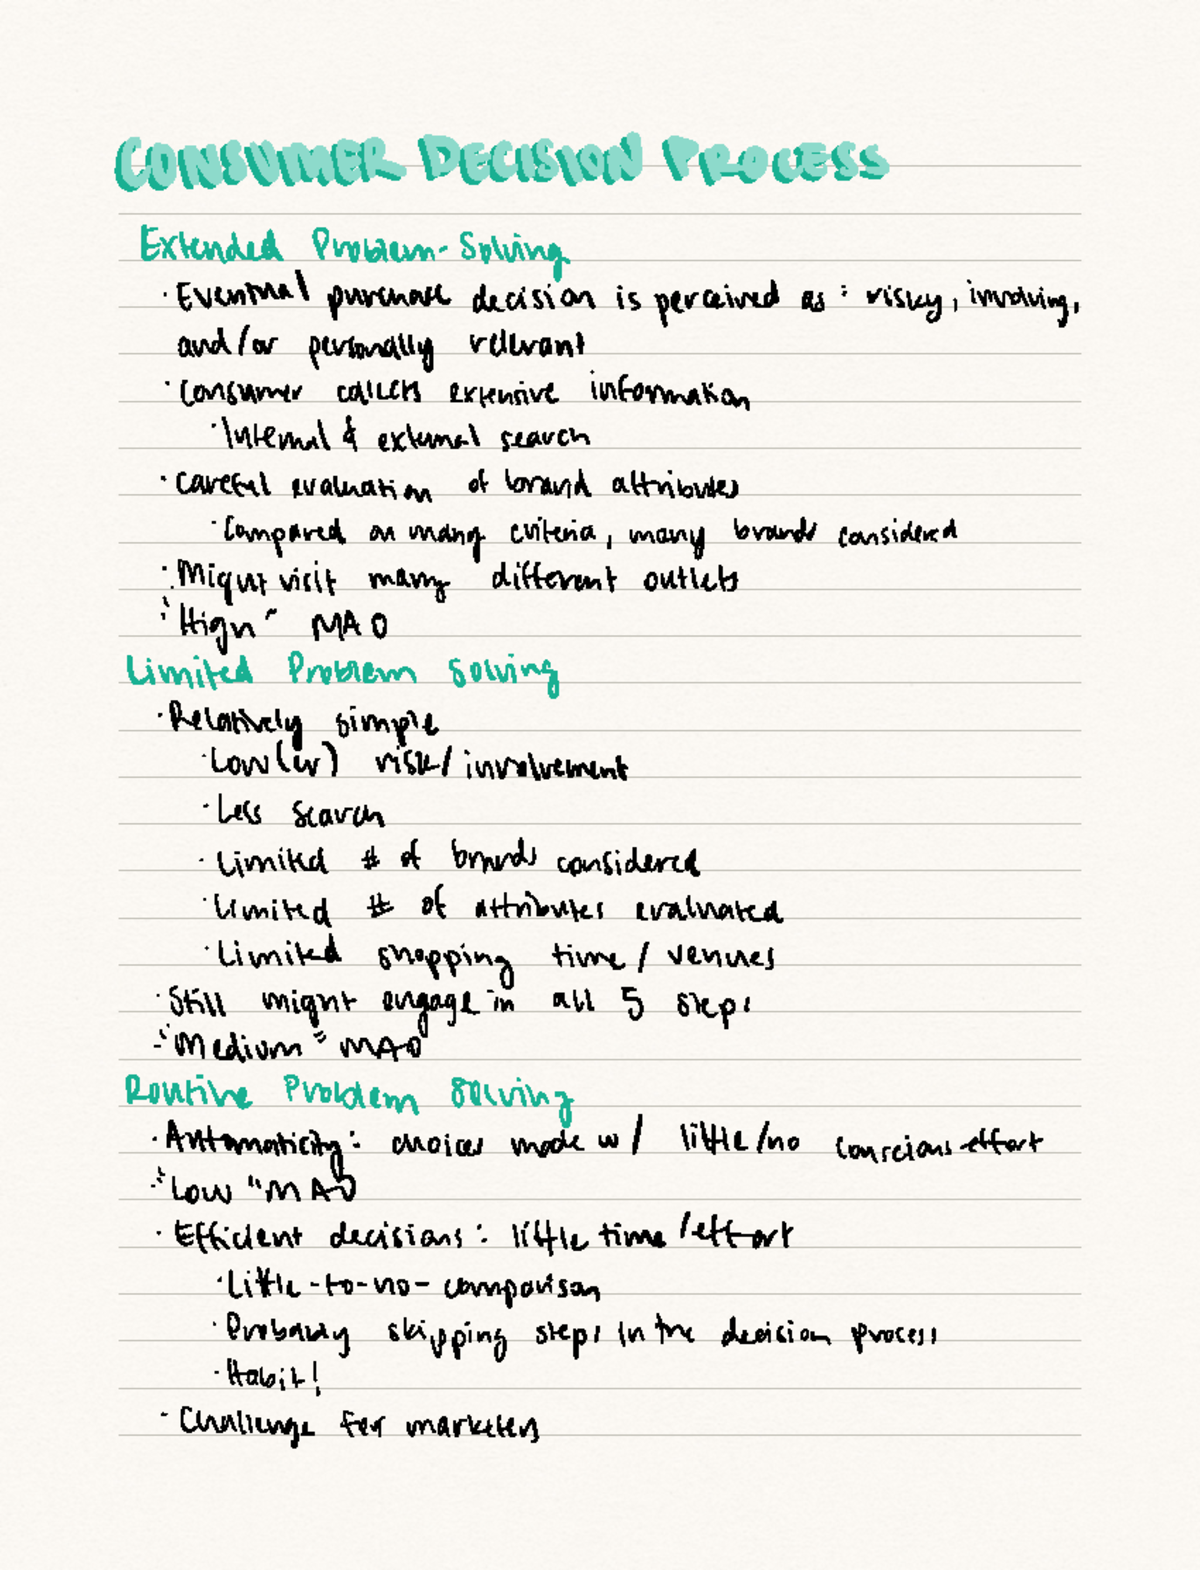 CONSUMER DECISION PROCESS
Extended Problem-Solving
· Eventual purchase decision is perceived as: risky, involving,
and/or personally relevant
· Consumer collects extensive information
· Internal & external search
· Careful evaluation of brand attributes
· Compared on many criteria, many brands considered
· Might visit many different outlets
· "High" MAO
Limited Problem Solving
· Relatively simple
· Low(er) risk/involvement
· Less search
· Limited # of brands considered
· Limited # of attributes evaluated
· Limited shopping time/venues
· Still might engage in all 5 steps
- "Medium" MAO
Routine Problem Solving
· Automaticity: choices made w/ little/no conscious effort
· "Low" MAO
· Efficient decisions: little time/effort
· Little-to-no-comparison
· Probably skipping steps in the decision process
· Habit!
· Challenge for marketers